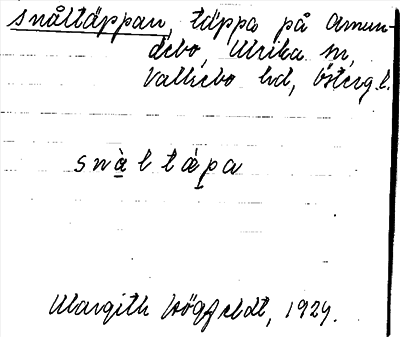 Snåltäppan, täppa på Amun-
debo, Ulrika sn,
Vallsebo hd, Österg.l.
snàltápa
Margith Högfeldt, 1929.